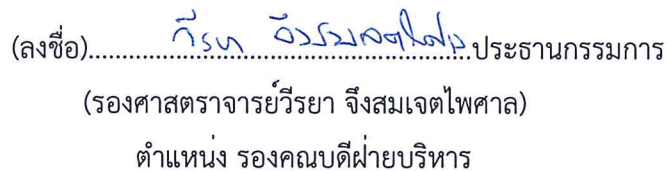 (ลงชื่อ)..................................................ประธานกรรมการ
(รองศาสตราจารย์วีรยา จึงสมเจตไพศาล)
ตำแหน่ง รองคณบดีฝ่ายบริหาร